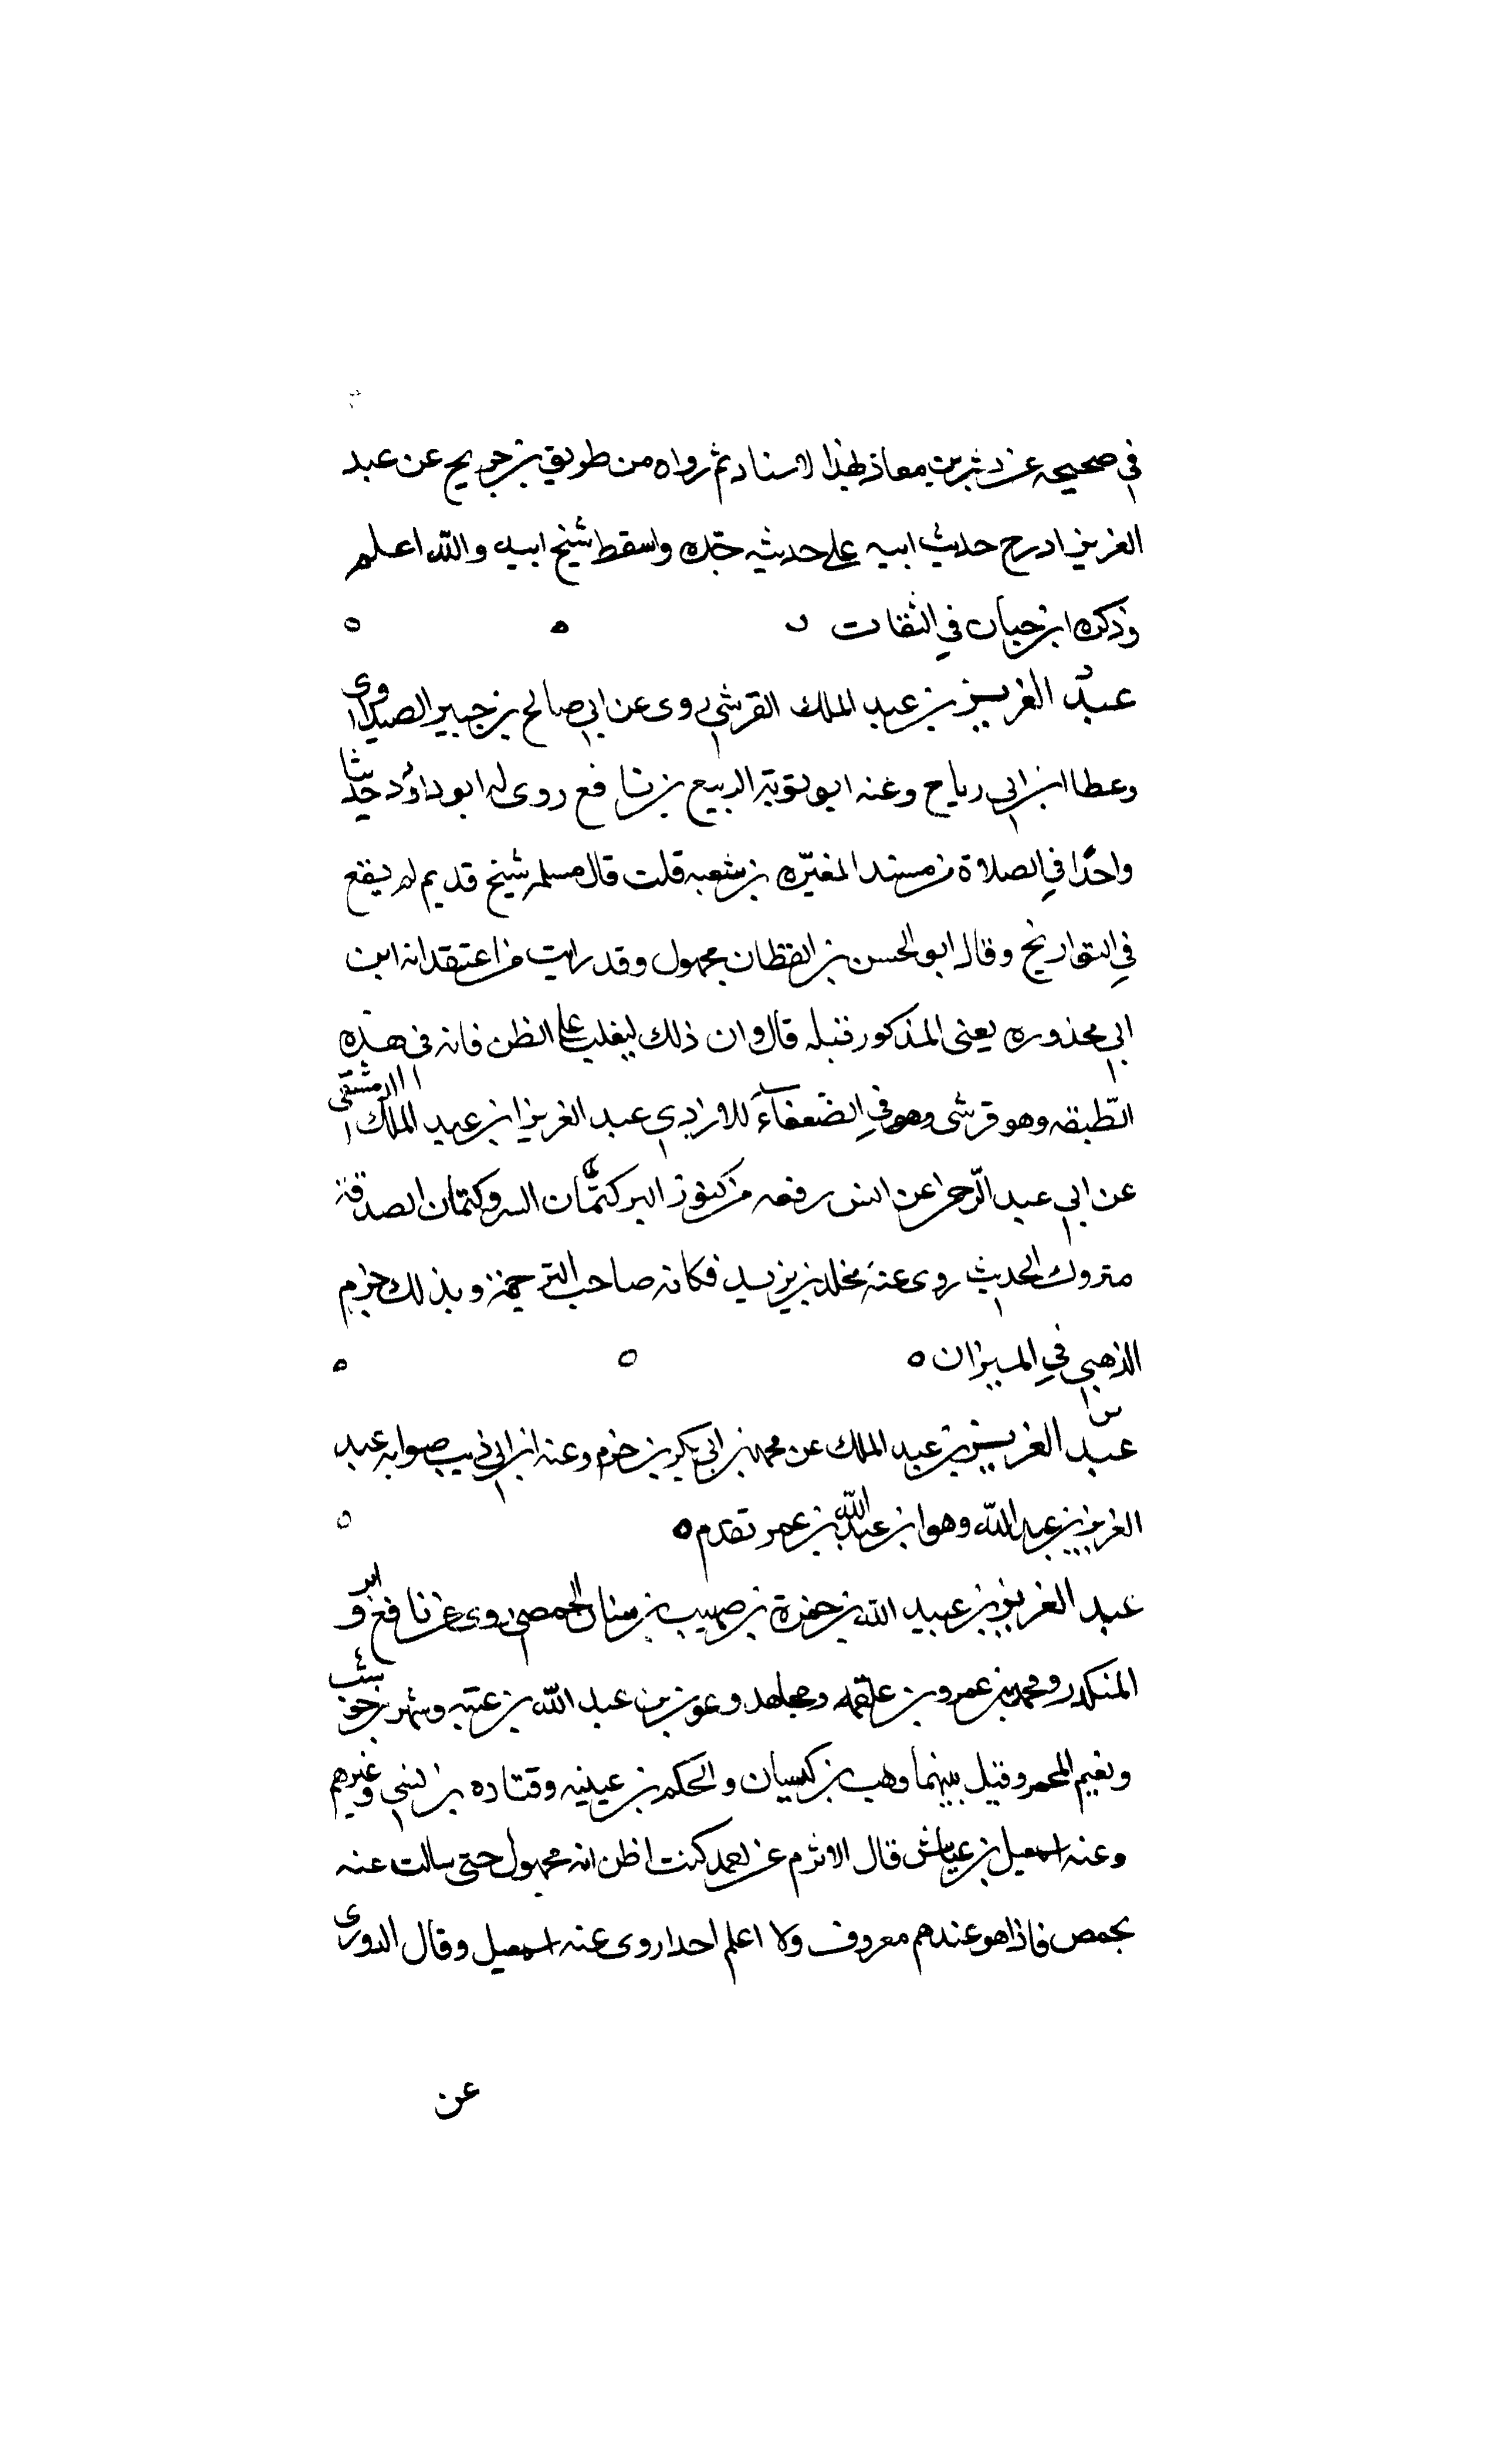 في صحيحه عن بشر بن معاذ بهذا الاسناد ثم رواه من طريق بن جريج عن عبد
العزيز ادرج حديث ابيه على حديثه جده واسقط شيخ ابيه والله اعلم
وذكره ابن حبان في الثقات
عبد العزيز بن عبد الملك القرشي روى عن ابي صالح بن جبير الصيداوى
وعطا ابن ابي رباح وعنه ابو توبة الربيع بن نافع روى له ابو داؤد حديثا
واحدًا في الصلاة من مسند المغيره بن شعبه قلت قال مسلم شيخ قديم لم يقع
في التواريخ وقال ابو الحسن بن القطان مجهول وقد رايت من اعتقد انه ابن
ابي محذوره يعنى المذكور قبله قال وان ذلك ليغلب على الظن فانه في هذه
الطبقه وهو قرشى وهو في الضعفاء للازدي عبد العزيز ابن عبد الملك الدمشقى
عن ابي عبد الرحمن عن انس رفعه من كنوز البر كتمان السر وكتمان الصدقة
متروك الحديث روى عنه مخلد بن يزيد فكانه صاحب الترجمة وبذلك جزم
الذهبي في الميزان
س
عبد العزيز بن عبد الملك عن محمد بن ابي بكر بن حزم وعنه ابن ابي ذيب صوابه عبد
العزيز بن عبد الله وهو ابن عبد الله بن عمر تقدم
عبد العزيز بن عبيد الله بن حمزة بن صهيب بن سنان الحمصي روى عن نافع و ابن
المنكدر ومحمد بن عمرو بن علقمه ومجاهد وعون بن عبد الله بن عتبه وشهر بن حوشب
ونعيم المجمر وقيل بينهما وهب بن كيسان والحكم بن عيينه وقتاده بن انس وغيرهم
وعنه اسمعيل بن عياش قال الاثرم عن احمد كنت اظن انه مجهول حتى سالت عنه
بحمص فاذا هو عندهم معروف ولا اعلم احدا روى عنه اسمعيل وقال الدورى
عن